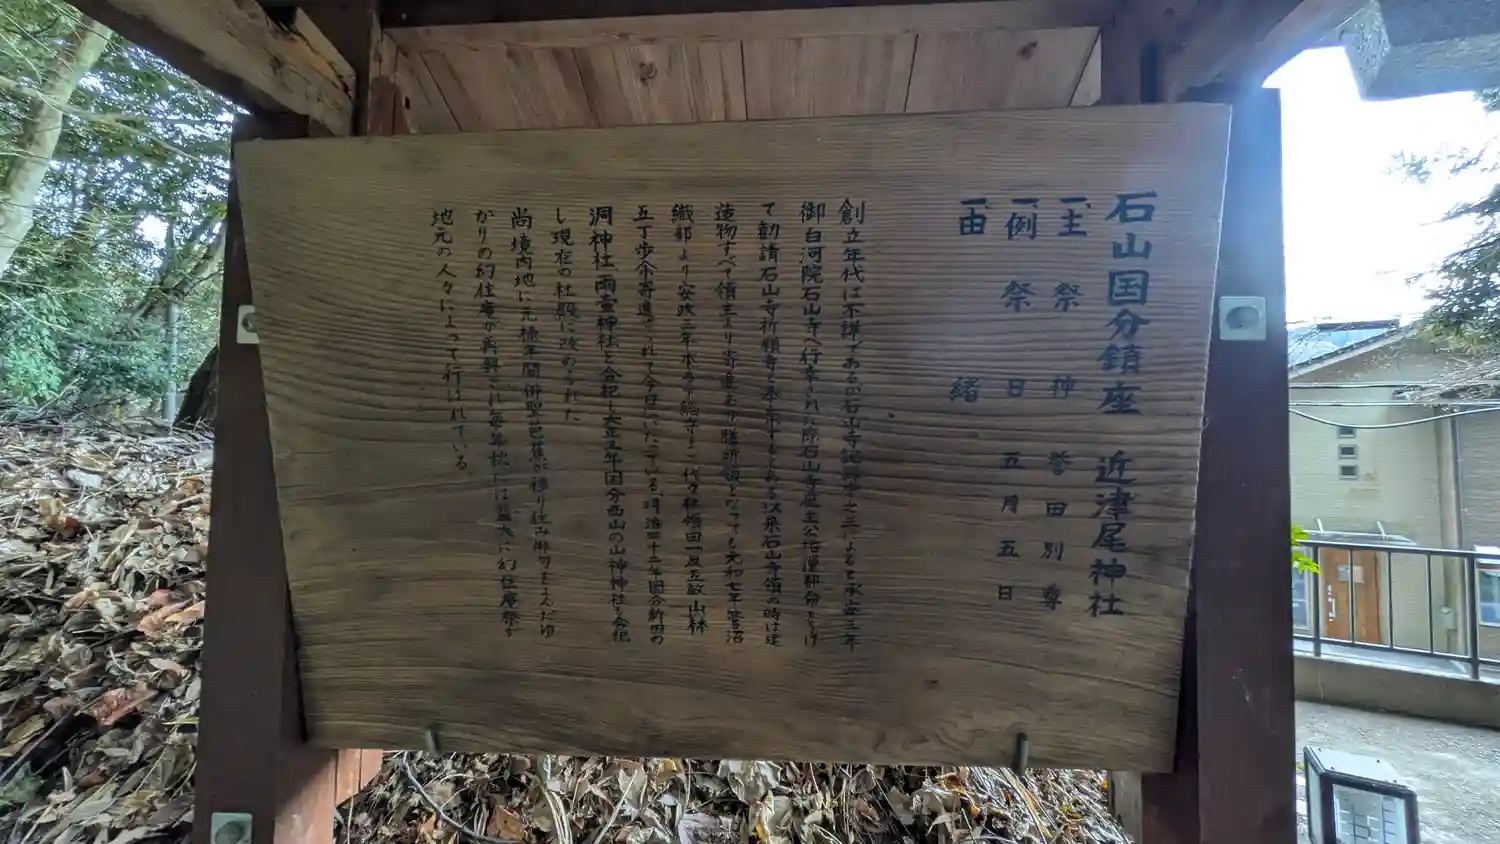 石山国分鎮座 近津尾神社
一、主祭神 誉田別尊
一、例祭日 五月五日
一、由緒
創立年代は不詳であるが石山寺記 によると承安三年
御白河院石山寺へ行幸された際石山寺座主公 僧都命をうけ
て勧請石山寺祈願寺の本 とある以来石山寺領の時は建
造物すべて領主より寄進あり膳所領となっても元和七年菅沼
織部より安政二年水 まで代々 田一反五畝山林
五丁歩余寄進 られて今日にいたっている明治四十二年国分新田の
洞神社、雨壺神社を合祀し大正五年国分西山の山神神社を合祀
し現在の社殿に改められた
尚境内地に元禄年間俳聖芭蕉が移り住み俳句をよんだゆ
かりの幻住庵が再興され毎年秋には盛大に幻住庵祭が
地元の人々によって行はれている